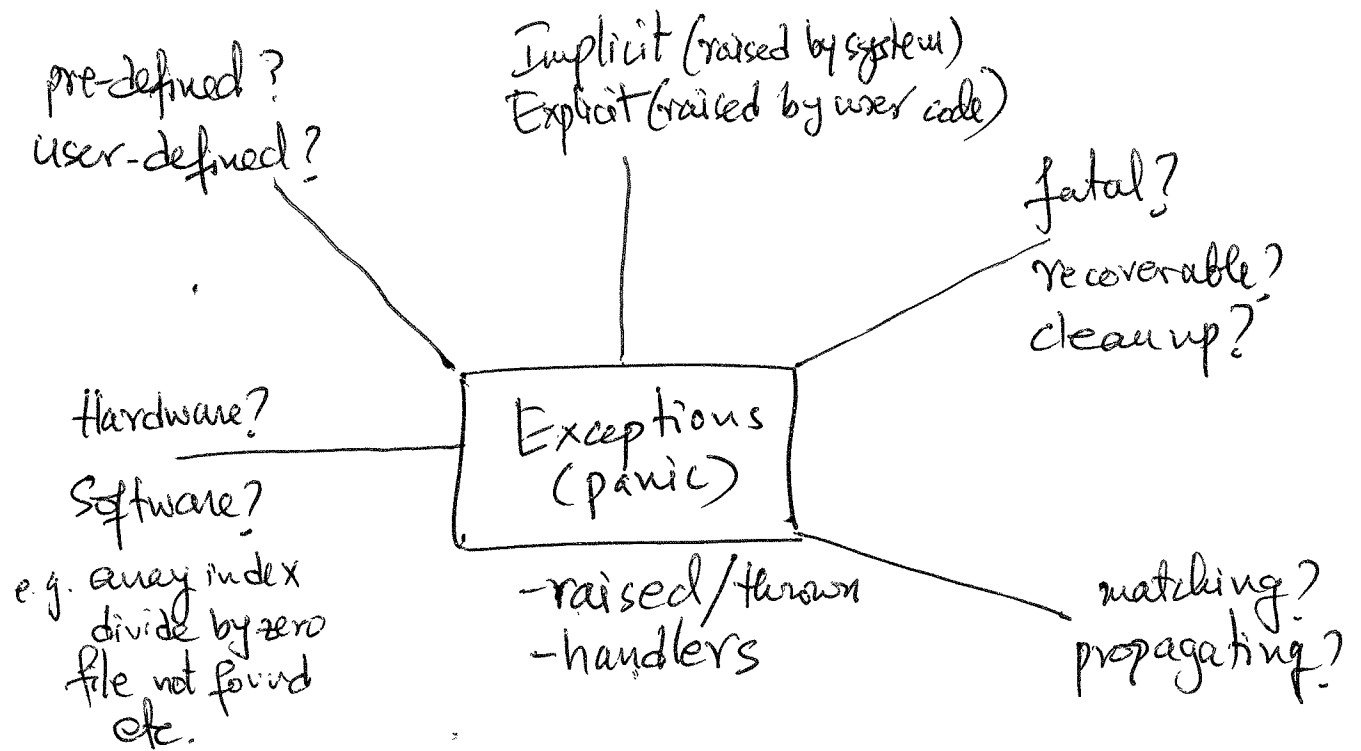 pre-defined?
user-defined?
Implicit (raised by system)
Explicit (raised by user code)
fatal?
recoverable?
cleanup?
Hardware?
Software?
e.g. array index
divide by zero
file not found
etc.
Exceptions
(panic)
-raised/thrown
-handlers
matching?
propagating?